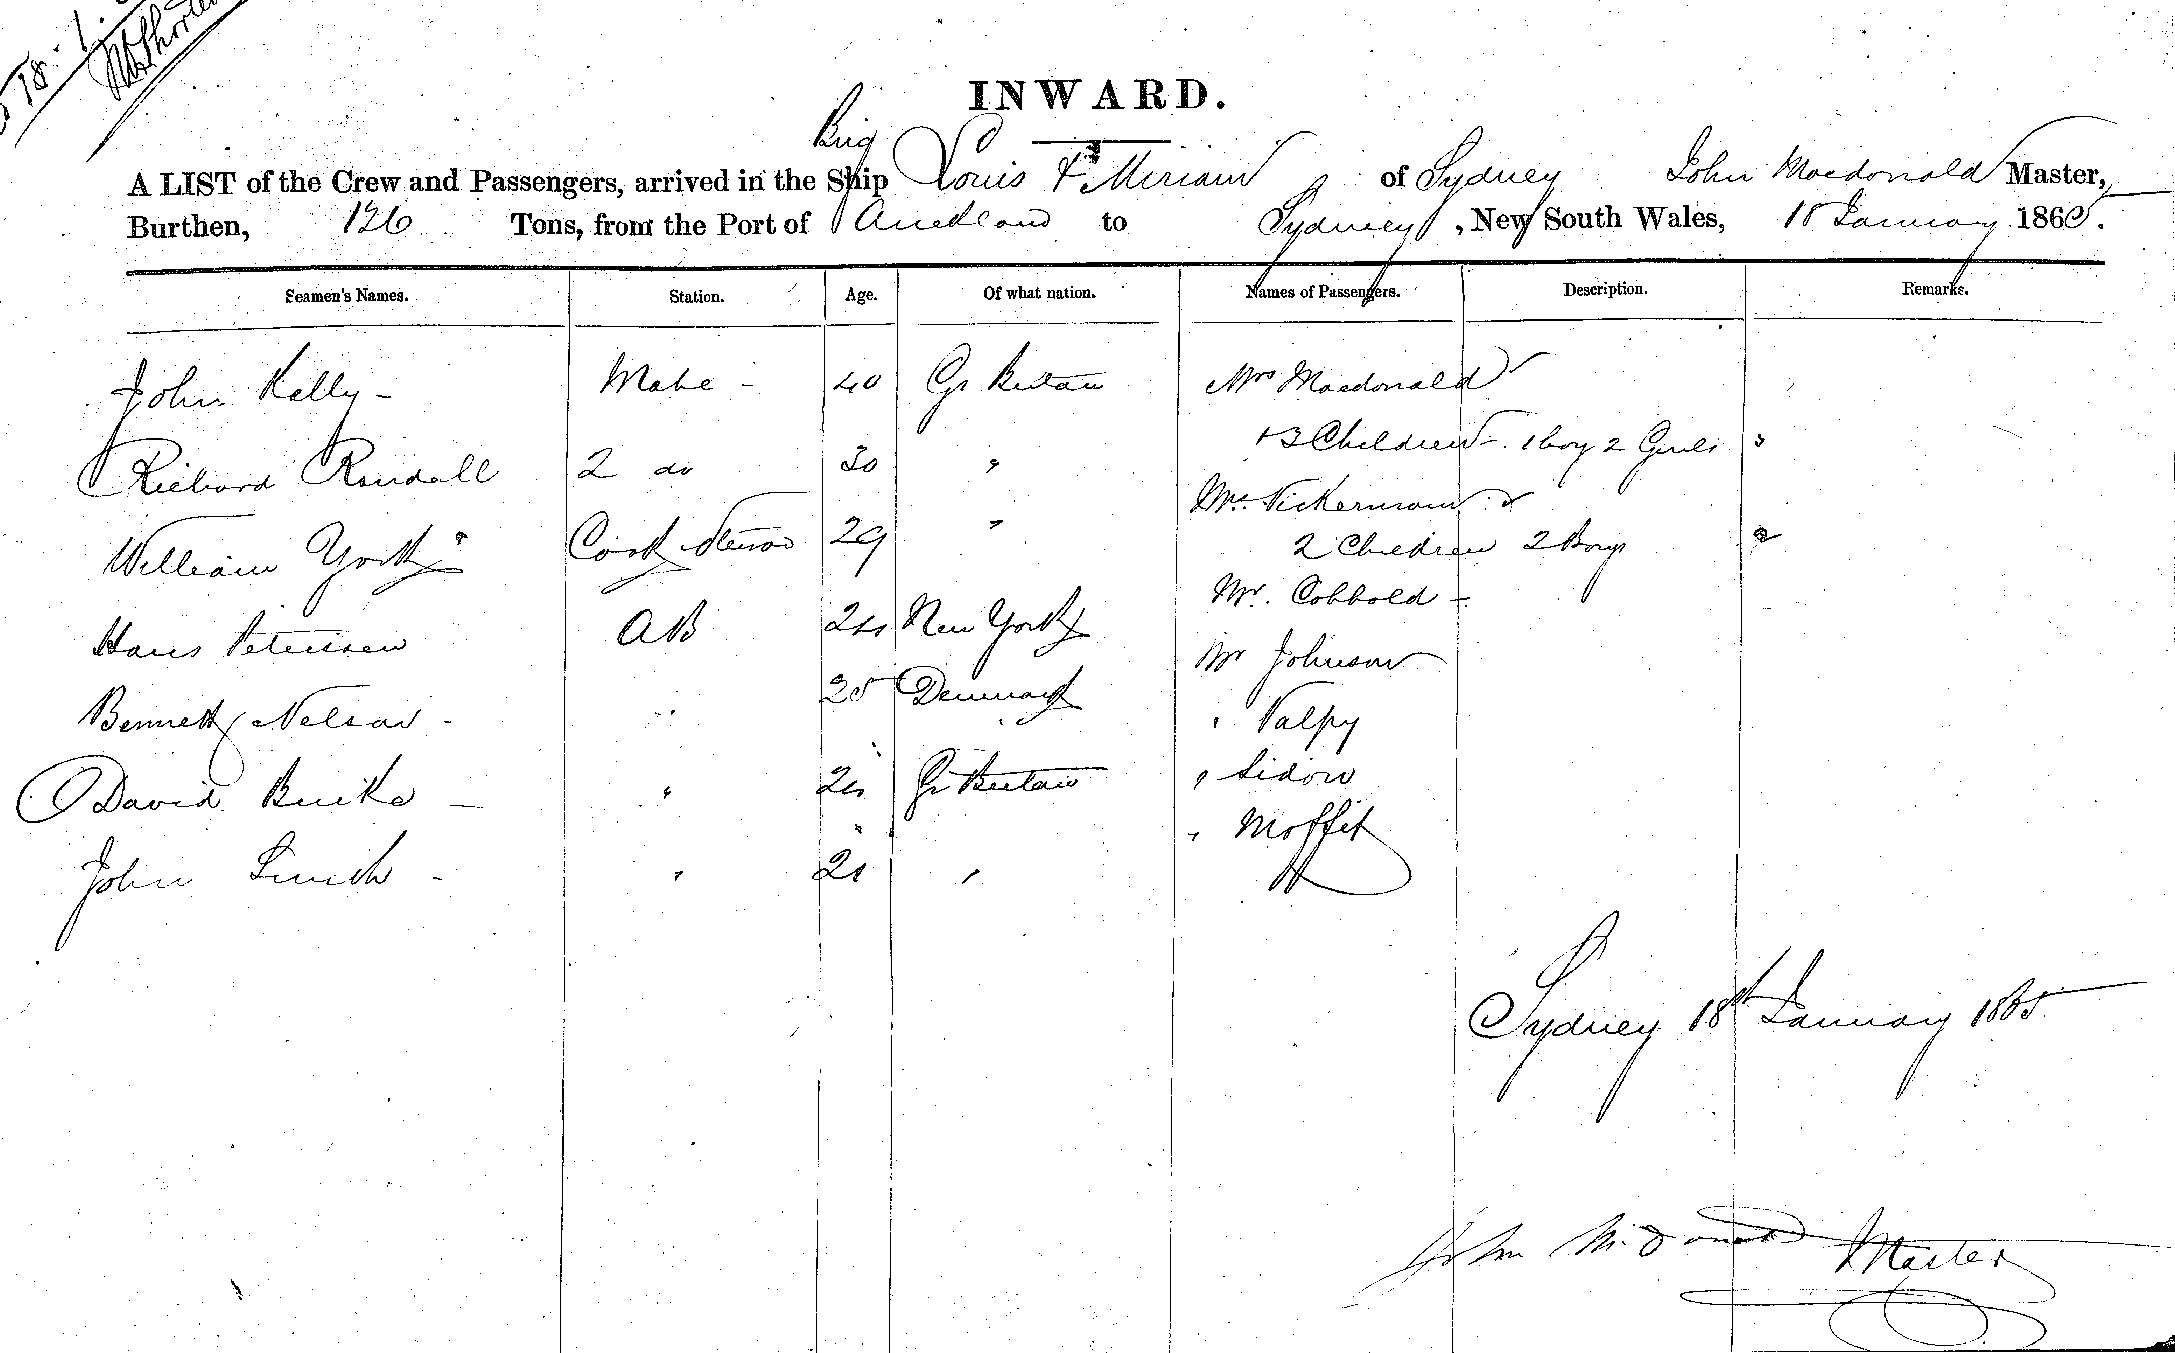 18.1.
INWARD.
Brig
A LIST of the Crew and Passengers, arrived in the Ship Louis & Miriam of Sydney John Macdonald Master,
Burthen, 126 Tons, from the Port of Auckland to Sydney, New South Wales, 18 January 1865.
Seamen's Names. Station. Age. Of what nation. Names of Passengers. Description. Remarks.
John Kelly - Mate - 40 Gr Britain Mrs Macdonald
+3 Children - 1 boy 2 Girls 3
Richard Randall 2 do 30 "
Mrs. Nickerman
William York Cook Steward 29 "
2 Children 2 Boys 2
Mr. Cobbold -
Hans Petersen AB New York
Mr Johnson
Bennett Nelson - " 25 Denmark
" Valpy
David Burke - " Gr Britain
" Sidow
" Moffit
John Smith - " "
Sydney 18th January 1865
John McDonald Master